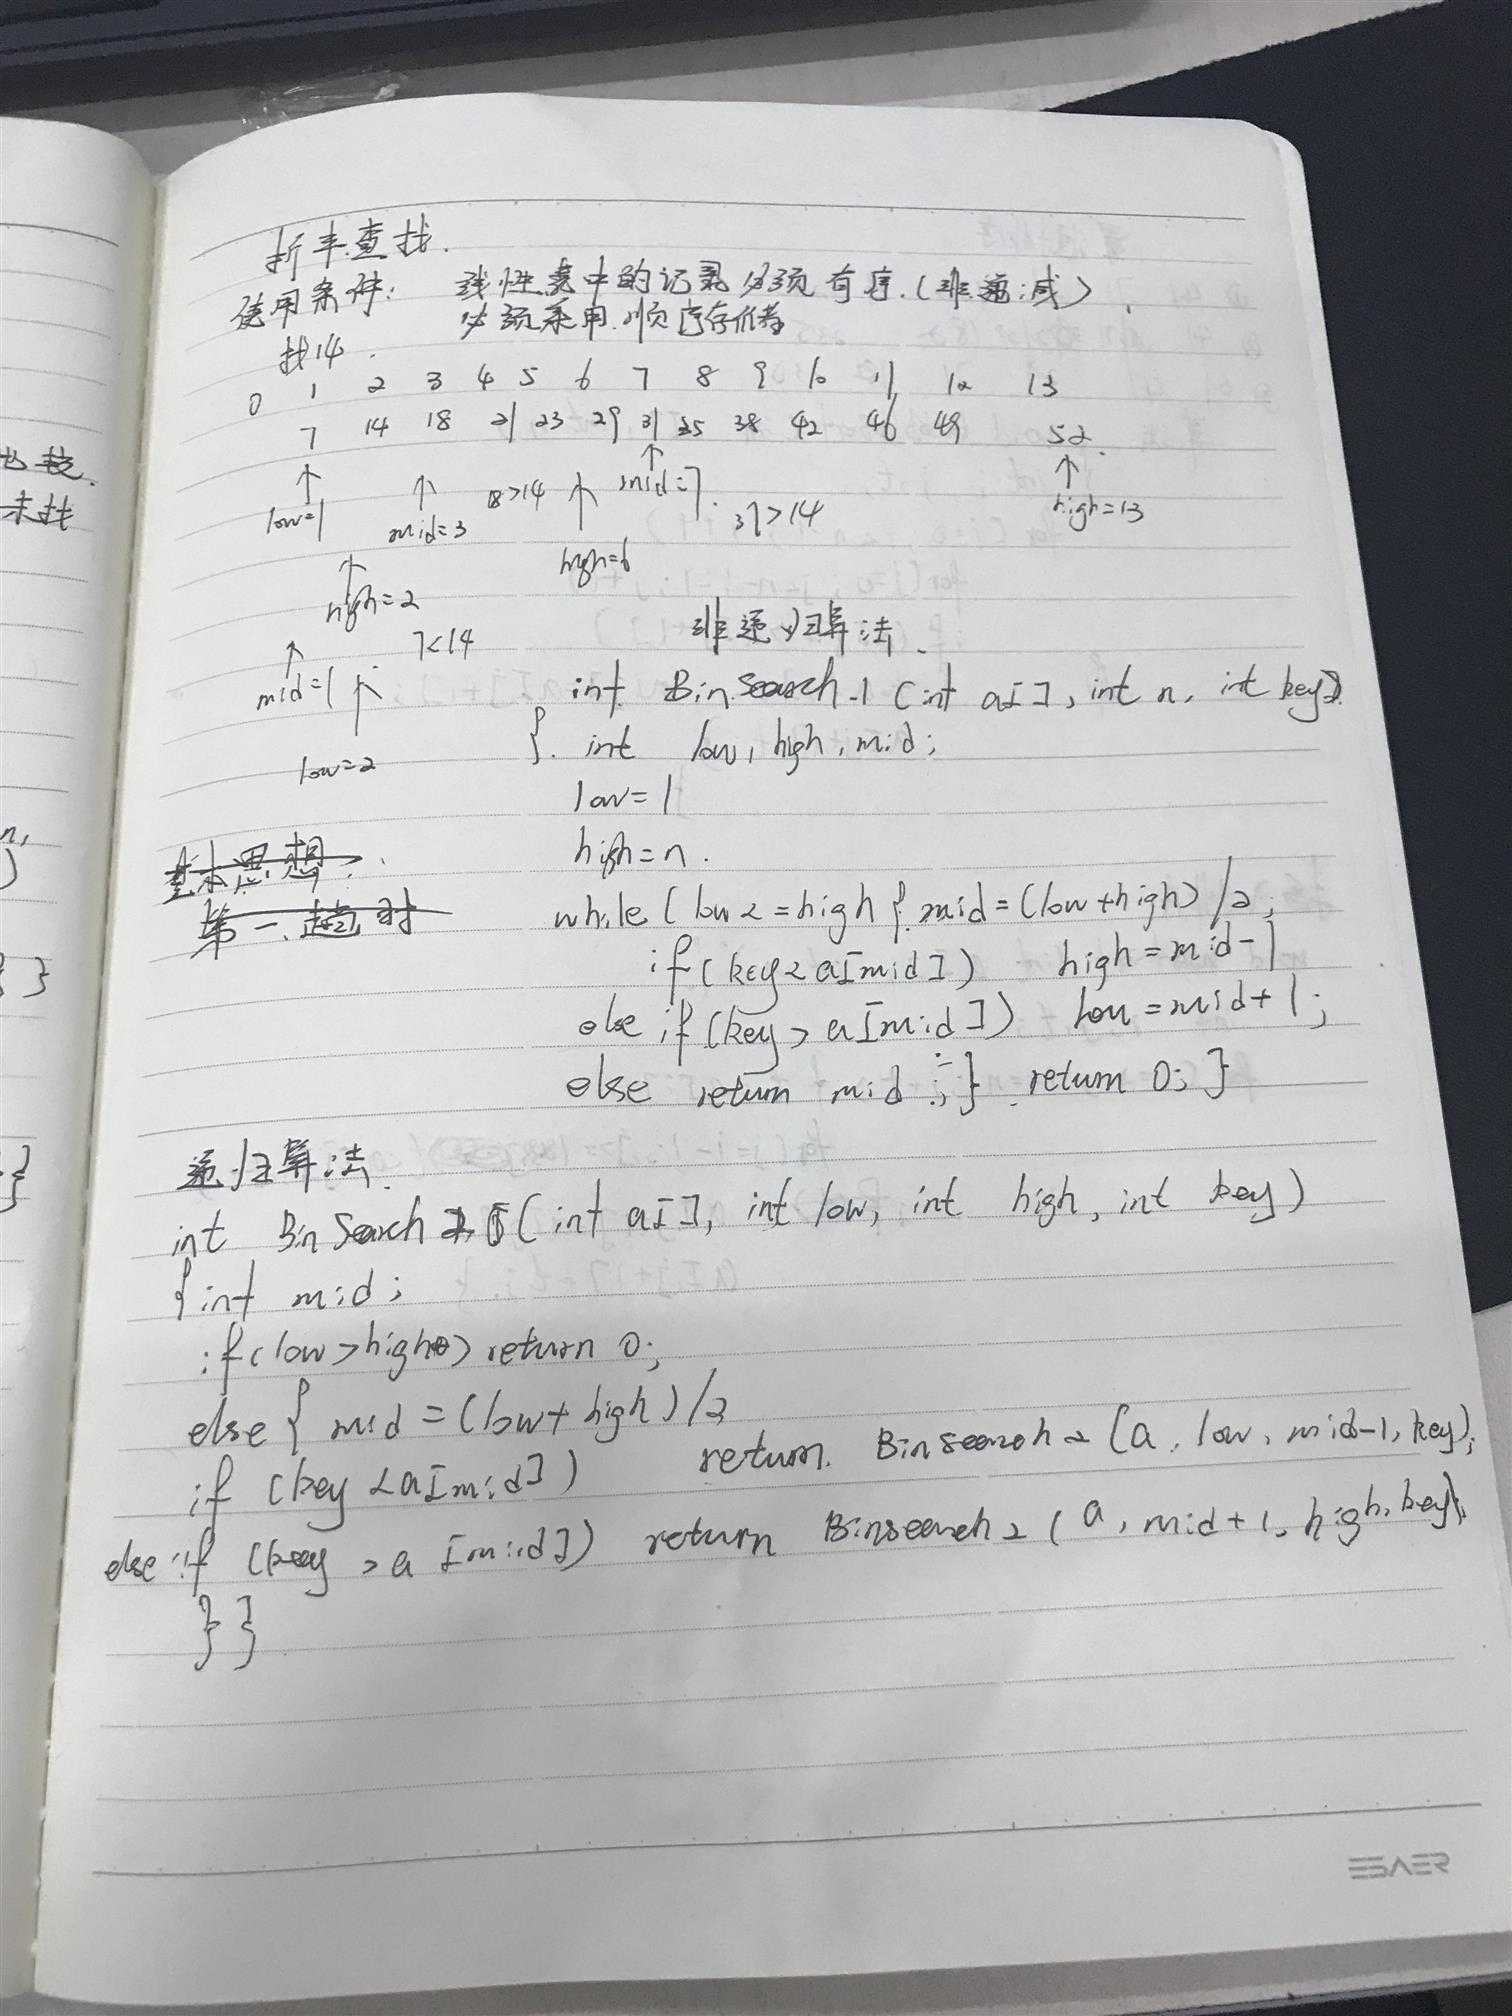 折半查找.
使用条件: 线性表中的记录必须有序.(非递减)
必须采用顺序存储
找14.
0 1 2 3 4 5 6 7 8 9 10 11 12 13
7 14 18 21 23 29 31 35 38 42 46 49 52
low=1 mid=3 18>14 mid=7 31>14 high=13
high=2 high=6
mid=1 7<14
low=2
非递归算法.
int BinSearch-1 (int a[], int n, int key)
{ int low, high, mid;
low=1
high=n.
while (low<=high { mid=(low+high)/2;
if (key<a[mid]) high=mid-1
else if (key>a[mid]) low=mid+1;
else return mid ; } return 0; }
基本思想.
第一趟时
递归算法.
int BinSearch 2 (int a[], int low, int high, int key)
{ int mid;
if (low>high) return 0;
else { mid=(low+high)/2
if (key<a[mid]) return Binsearch2 (a, low, mid-1, key);
else if (key>a[mid]) return Binsearch2 (a, mid+1, high, key);
} }
也较.
未找
n,
)
} }
}
ESAER